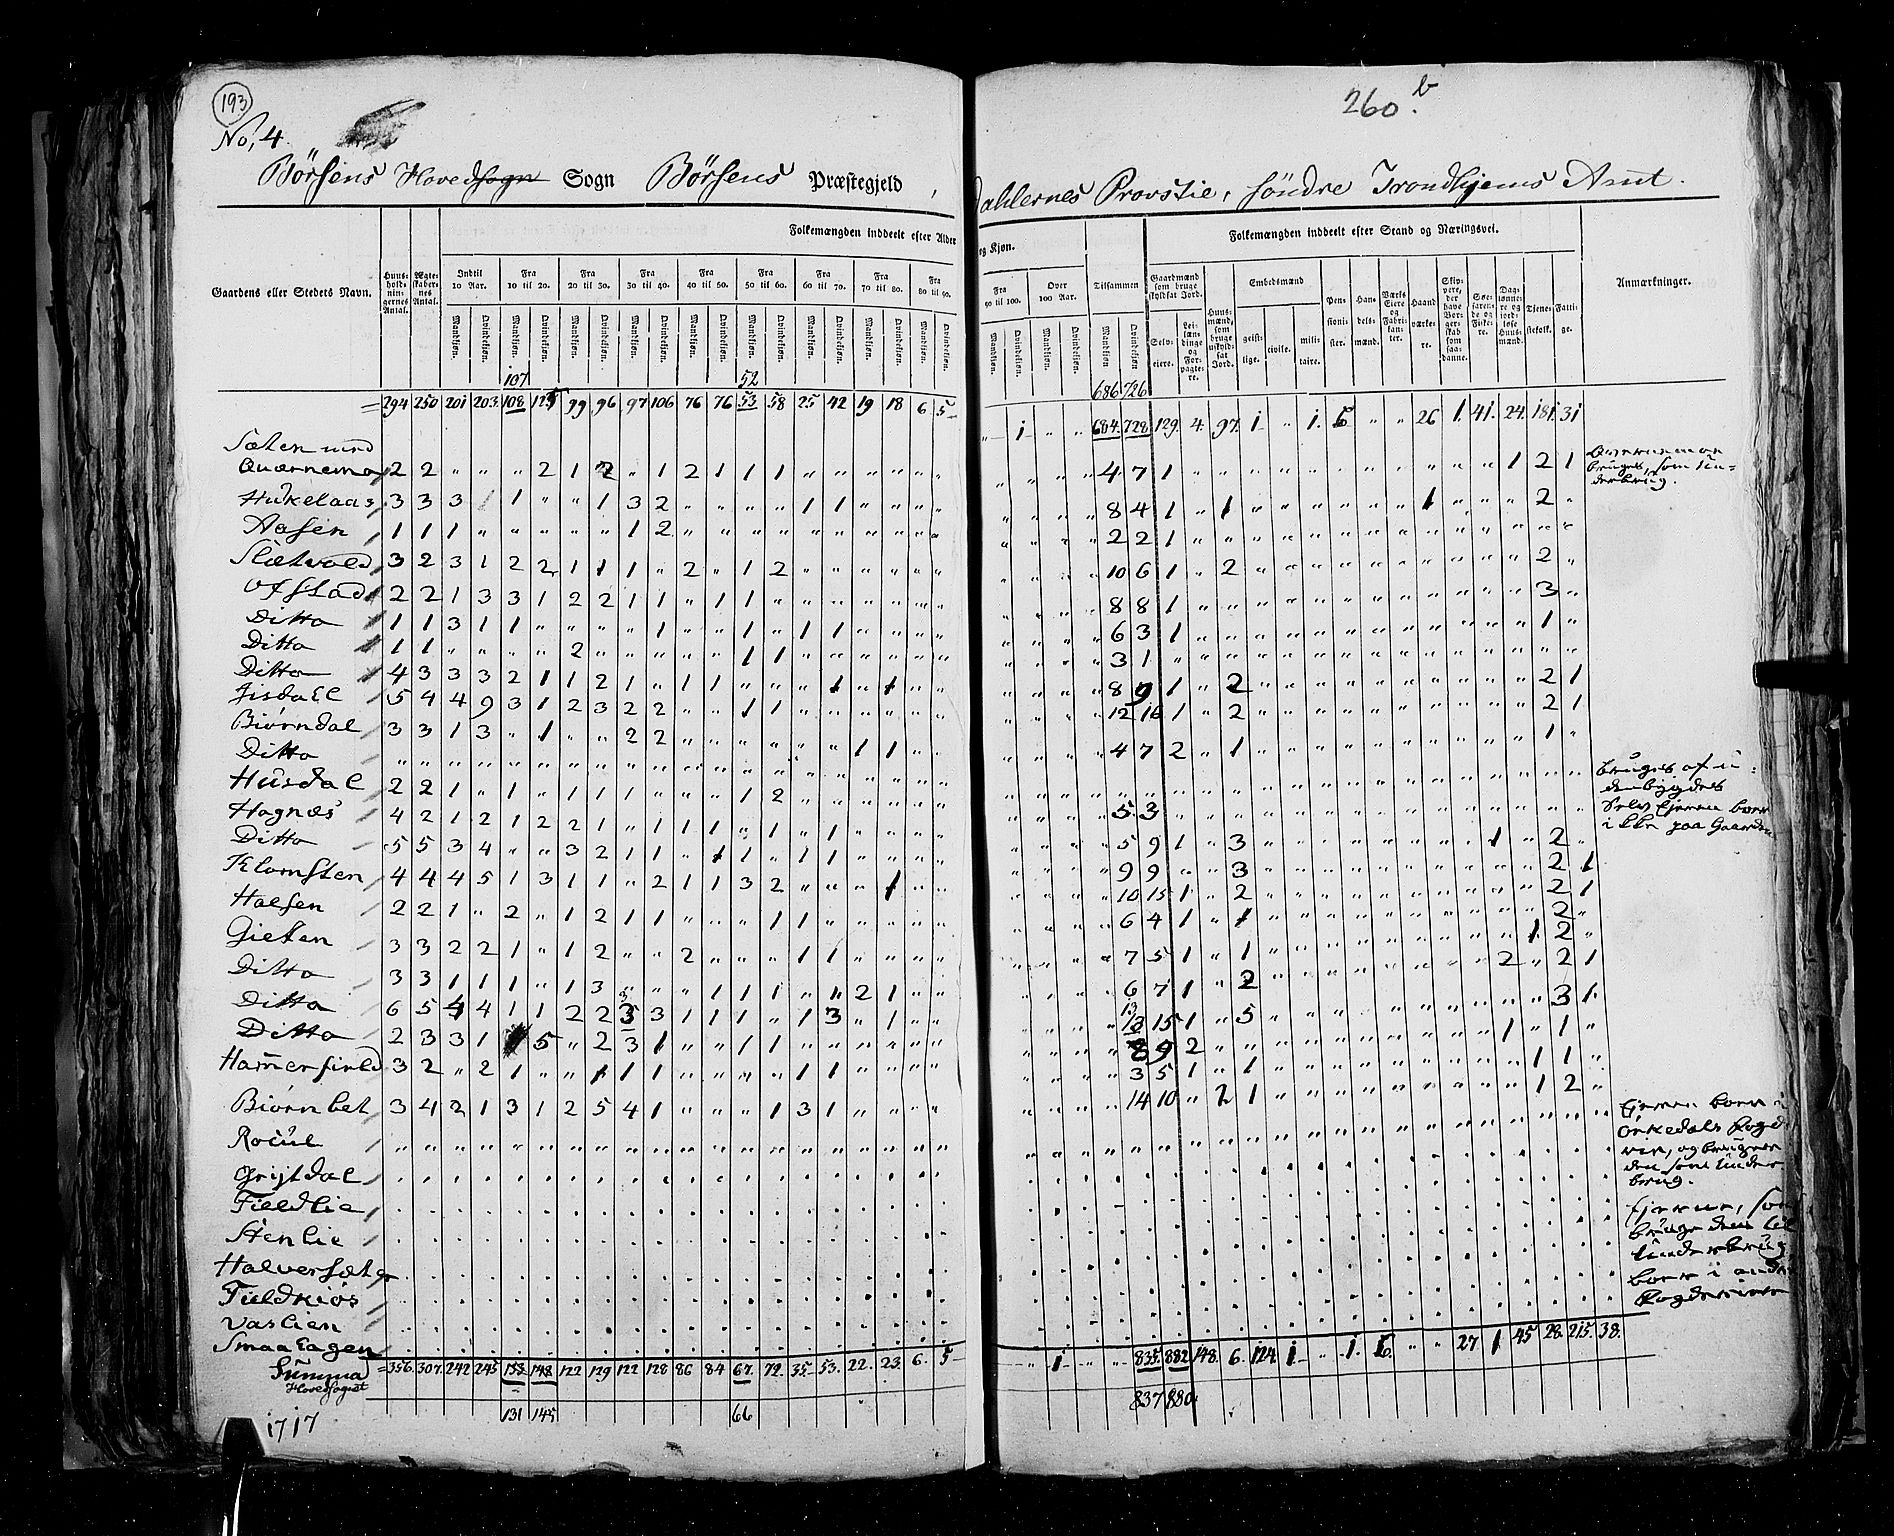 193
No, 4
260 b.
Börsens Hovedsogn Sogn Börsens Præstegjeld, Dahlernes Provstie, söndre Trondhjems Amt.
Gaardens eller Stedets Navn.
Huus-holdningernes Antal.
Ægteskabernes Antal.
Folkemængden inddeelt efter Alder og Kjøn.
Indtil 10 Aar.
Fra 10 til 20.
Fra 20 til 30.
Fra 30 til 40.
Fra 40 til 50.
Fra 50 til 60.
Fra 60 til 70.
Fra 70 til 80.
Fra 80 til 90.
Fra 90 til 100.
Over 100 Aar.
Mandkjøn. Qvindekjøn.
Tilsammen
Folkemængden inddeelt efter Stand og Næringsvei.
Gaardmænd som bruge skyldsat Jord.
Selveiere.
Leilændinge og Forpagtere.
Huusmænd, som bruge uskyldsat Jord.
Embedsmænd
geistlige. civile. militaire.
Pensionister.
Handelsmænd.
Værks Eiere og Fabrikanter.
Haandværkere.
Skippere, der have Borgerskab som saadanne.
Søefarende og Fiskere.
Daglønnere og jordløse Huusmænd.
Tjenestefolk.
Fattige.
Anmærkninger.
107 52 686 726
= 294 250 201 203 108 125 99 96 97 106 76 76 53 58 25 42 19 18 6 5 " 1 " " 684 728 129 4 97 1 " 1 5 " " 26 1 41 24 181 31
Sæten med
Quærnemo 2 2 " " " 2 1 2 " 1 2 1 1 1 " " " " " " " " " " 4 7 1 " " " " " " " " " " " 1 2 1
Huskelaas 3 3 3 1 " " 1 3 2 " " " " 1 1 " " " " 8 4 1 " 1 " " " " " " 1 " " " 2 "
Aasen 1 1 1 " " " " " " 1 2 " " " " " " " " " " 2 2 1
Slætvold 3 2 3 1 2 2 1 1 1 " 2 " 1 2 " " " " " " 10 6 1 " 2 2 "
Ofstad 2 2 1 3 3 1 2 2 1 1 " 1 1 " " " " " " " 8 8 1 3 "
Ditto 1 1 3 1 1 " " " " 1 " " 1 " 1 1 " " " " 6 3 1 1 "
Ditto 1 1 " " " " 2 " " " " " 1 1 " " " " " " 3 1
Ditto 4 3 3 3 2 1 1 2 1 " 1 1 " " " 1 " 1 " " 8 9 1 " 2 2 1
Jisdall 5 4 4 9 3 1 2 3 2 2 " " 1 1 " " " " " " 12 16 1 " 2 2 1
Biörndal 3 3 1 3 " 1 " " 2 2 " " " " " " 1 1 " " 4 7 2 " 1 1 "
Ditto
Husdal 2 2 1 " 1 " 1 1 1 " " " 1 2 " " " " " " 5 3
Hognæs 4 2 1 2 1 2 2 1 " 1 1 1 " 1 " 1 " " " " 5 9 1 " 3 1 " 2 "
Ditto 5 5 3 4 " " 3 2 1 1 " 1 1 " 1 1 " " " " 9 9 " " 3 2 1
Klomsten 4 4 4 5 1 3 1 1 " 2 1 1 3 2 " " " 1 " " 10 15 1 " 2 2 1
Halsen 2 2 1 " 2 " 1 2 1 1 " " " 1 1 " " " " " 6 4 1 " 1 2 "
Gieten 3 3 2 2 1 " 1 2 " " 2 " " " 1 1 " " " " 7 5 1 " 1 1 2 "
Ditto 3 3 1 1 1 " 1 3 " " " 1 1 1 " " 2 1 " " 6 7 1 " 2 2 " 2 1
Ditto 6 5 4 4 1 1 2 2 3 3 1 1 1 " 1 3 " 1 " " 13 15 1 " 5 3 1
Ditto 2 3 3 1 1 5 " 2 3 1 " " 1 1 " " " " " " 8 9 2 1 " 1 "
Hammerfield 3 2 " 2 1 " " 1 1 1 " " " " 1 1 " " " " 3 5 1 " 1 1 1 "
Biörnbet 3 4 2 1 3 1 2 5 4 1 " " " 1 3 1 " " " " 14 10 " 2 1 1 2 "
Grijtdal
Fieldlie
Stenlie
Halversæter
Fieldkiös
Vaslien
Smaa Eagen
Summa = 356. 307. 242 245 153 148 122 129 122 128 86 84 67 72. 35. 53. 22. 23. 6. 5 " 1 " " 835 882 148. 6. 124 1 " 1. 6. " " 27 1 45 28. 215. 38.
Hovedsognet
131 145 66 837 880
1717
bruges, som Un-
derbrug.
bruges af u-
denbygdes
Selv Ejeren boer
i kke paa Gaarden
Ejeren boer i
Orkedals Fogd
rie, og bruger
den som Under
brug.
Ejerne, som
bruge dem til
Underbrug,
boer i andre
Fogderier